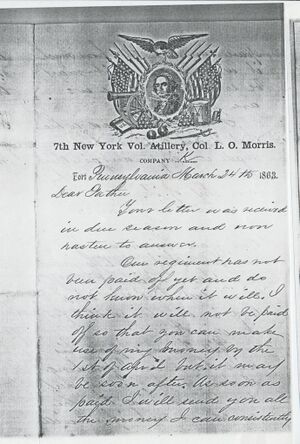 7th New York Vol. Atillery, Col. L. O. Morris.
COMPANY
Fort Pennsylvania March 24th 1863.
Dear Father
Your letter was received
in due season and now
hasten to answer.
Our regiment has not
been paid off yet and do
not know when it will. I
think it will not be paid
off so that you can make
use of my money by the
1st of April but it may
be soon after. As soon as
paid I will send you all
the money I can consistently